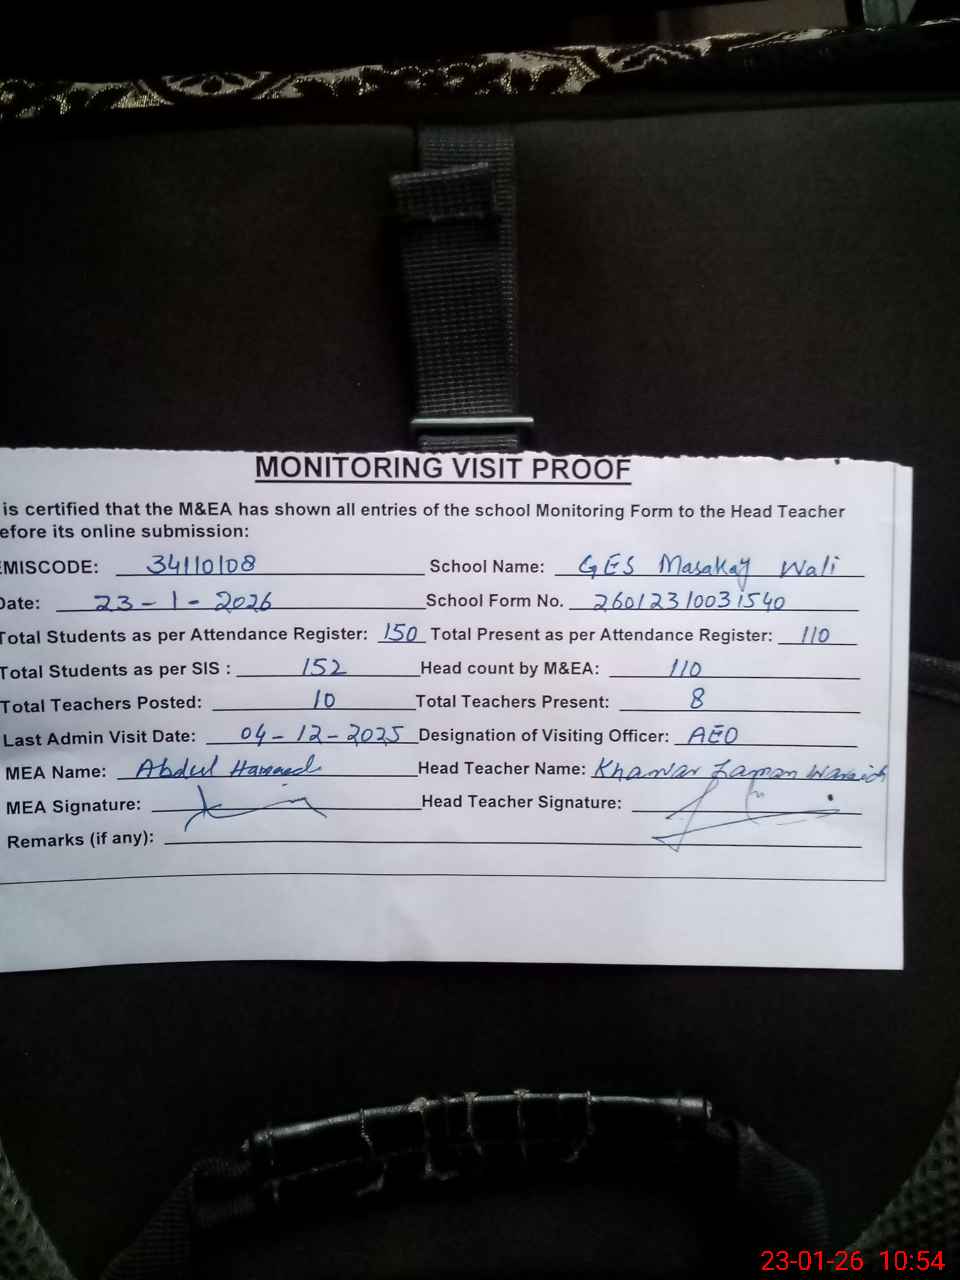 MONITORING VISIT PROOF
is certified that the M&EA has shown all entries of the school Monitoring Form to the Head Teacher
efore its online submission:
EMISCODE: 34110108 School Name: GES Masakay Wali
Date: 23-1-2026 School Form No. 26012310031540
Total Students as per Attendance Register: 150 Total Present as per Attendance Register: 110
Total Students as per SIS : 152 Head count by M&EA: 110
Total Teachers Posted: 10 Total Teachers Present: 8
Last Admin Visit Date: 04-12-2025 Designation of Visiting Officer: AEO
MEA Name: Abdul Hameed Head Teacher Name: Khawar Zaman Waraich
MEA Signature: Head Teacher Signature:
Remarks (if any):
23-01-26 10:54